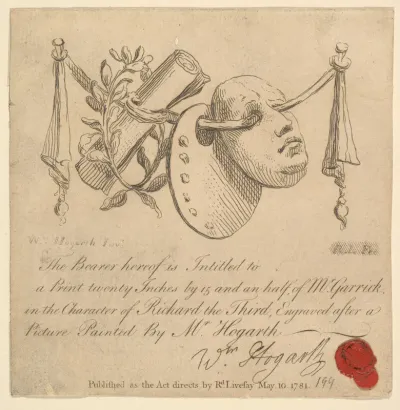 Wm Hogarth Inv.
The Bearer hereof is Intitled to
a Print twenty Inches by 15 and an half, of Mr. Garrick
in the Character of Richard the Third, Engraved after a
Picture Painted By Mr Hogarth
Wm Hogarth
199
Published as the Act directs by Rd. Livesay May. 10. 1781.